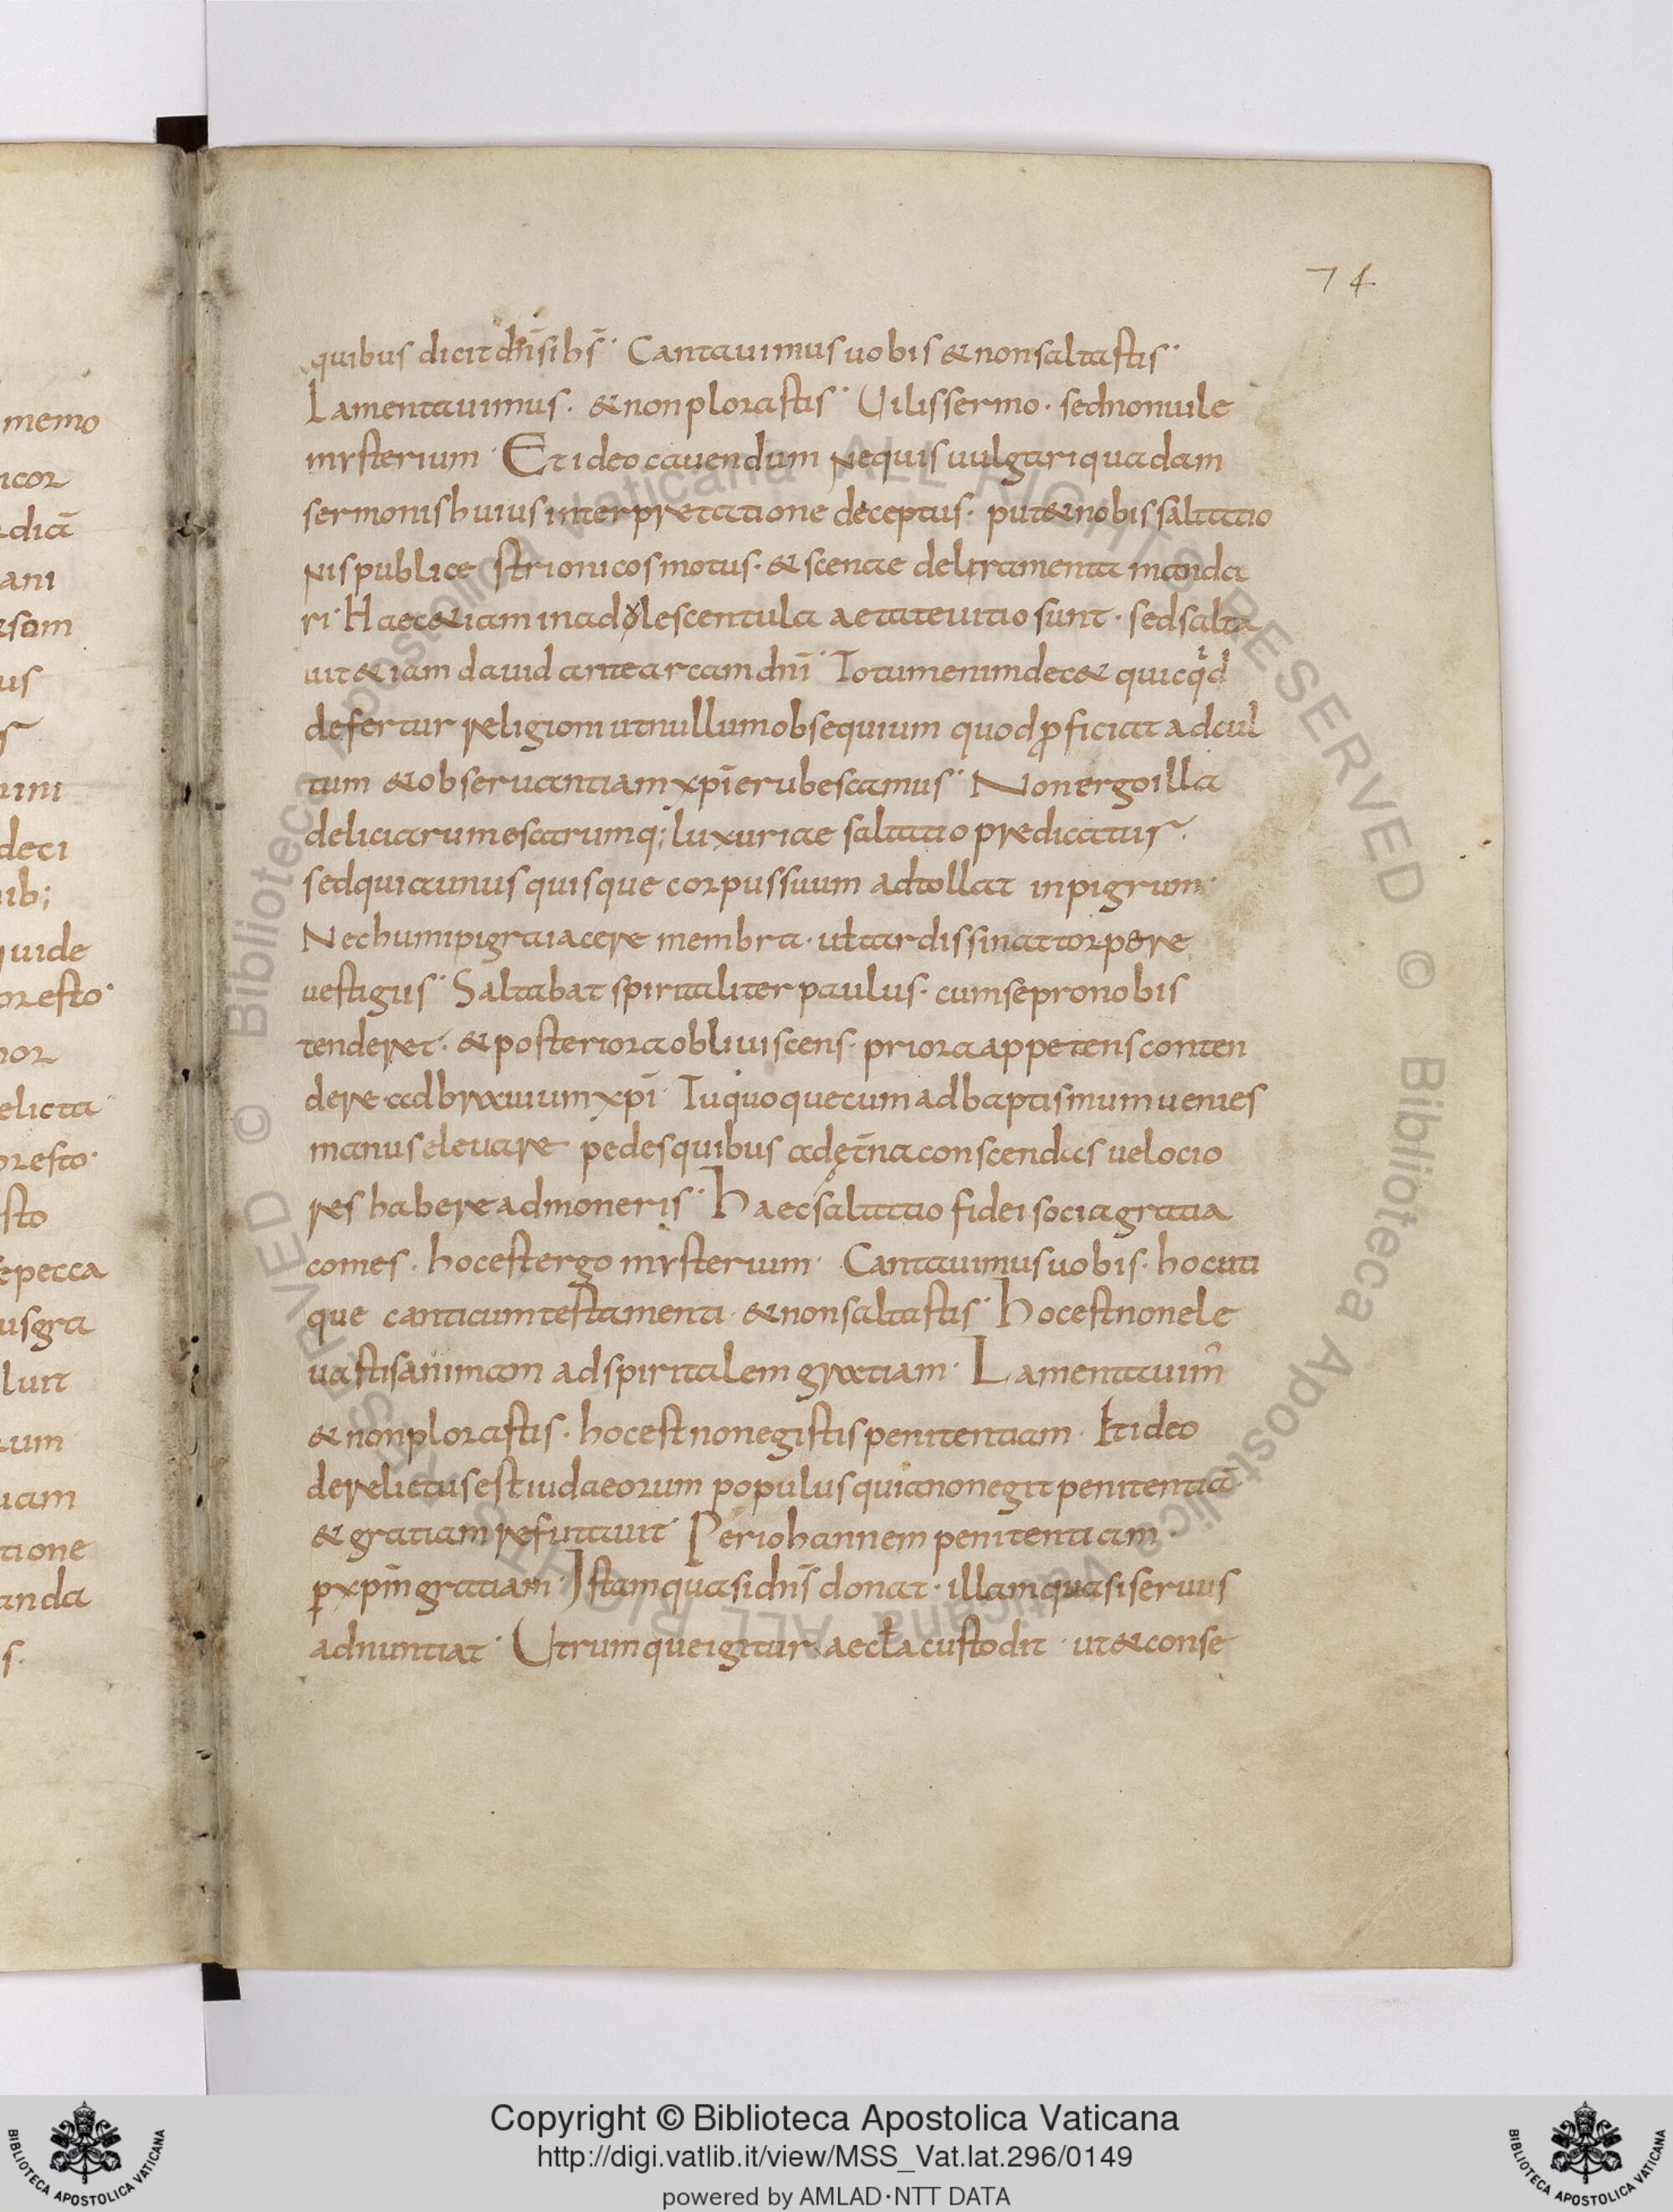 74
quibus dicit dn̄s ihs̄· Cantauimus uobis & non saltastis·
Lamentauimus· & non plorastis· Uilis sermo· sed non uile
mysterium· Et ideo cauendum ne quis uulgari quadam
sermonis huius interpretatione deceptus· put& nobis saltatio
nis publice strionicos motus· & scenae deliramenta manda
ri· Haec &iam in adolescentula aetate uitio sunt· sed salta
uit &iam dauid ante arcam dnī· Totum enim dec& quicq̄d
defertur religioni ut nullum obsequium quod ꝓficiat ad cul
tum & obseruantiam xpī erubescamus· Non ergo illa
deliciarum escarumq; luxuriae saltatio predicatur·
sed qui a unus quisque corpus suum adtollat inpigrum·
Nec humi pigra iacere membra· ut tardis sinat torpere
uestigiis· Saltabat spiritaliter paulus· cum se pro nobis
tenderet· & posteriora obliuiscens· priora appetens conten
dere ad brauium xpī· Tu quoque cum ad baptismum uenies
manus eleuare pedes quibus ad ęt̄na conscendas uelocio
res habere admoneris· Haec saltatio fidei socia gratia
comes· hoc est ergo mysterium· Cantauimus uobis· hoc uti
que canticum testamenti· & non saltastis· Hoc est non ele
uastis animam ad spiritalem gratiam· Lamentauim̄
& non plorastis· hoc est non egistis penitentiam· Et ideo
derelictus est iudaeorum populus quia non egit penitentiā·
& gratiam refutauit· Per iohannem penitentiam·
ꝑ xpm̄ gratiam· Istam quasi dn̄s donat· illam quasi seruus
adnuntiat· Utrumque igitur aeccła custodit· ut & conse
memo
icor
diā
ani
som
us
deci
ib;
uide
or esto·
elicta
or esto·
sto
epecca
us gra
luit
um
iam
tione
anda
s·
© Biblioteca Apostolica Vaticana ALL RIGHTS RESERVED
© Biblioteca Apostolica Vaticana ALL RIGHTS RESERVED
Copyright © Biblioteca Apostolica Vaticana
http://digi.vatlib.it/view/MSS_Vat.lat.296/0149
powered by AMLAD·NTT DATA
BIBLIOTECA APOSTOLICA VATICANA
BIBLIOTECA APOSTOLICA VATICANA